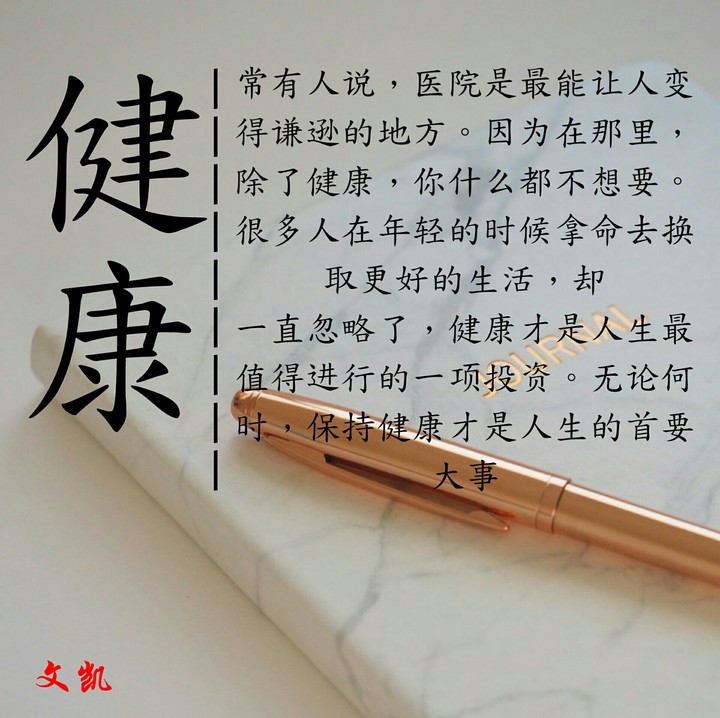 健康
常有人说，医院是最能让人变
得谦逊的地方。因为在那里，
除了健康，你什么都不想要。
很多人在年轻的时候拿命去换
取更好的生活，却
一直忽略了，健康才是人生最
值得进行的一项投资。无论何
时，保持健康才是人生的首要
大事
JOURNAL
文凯